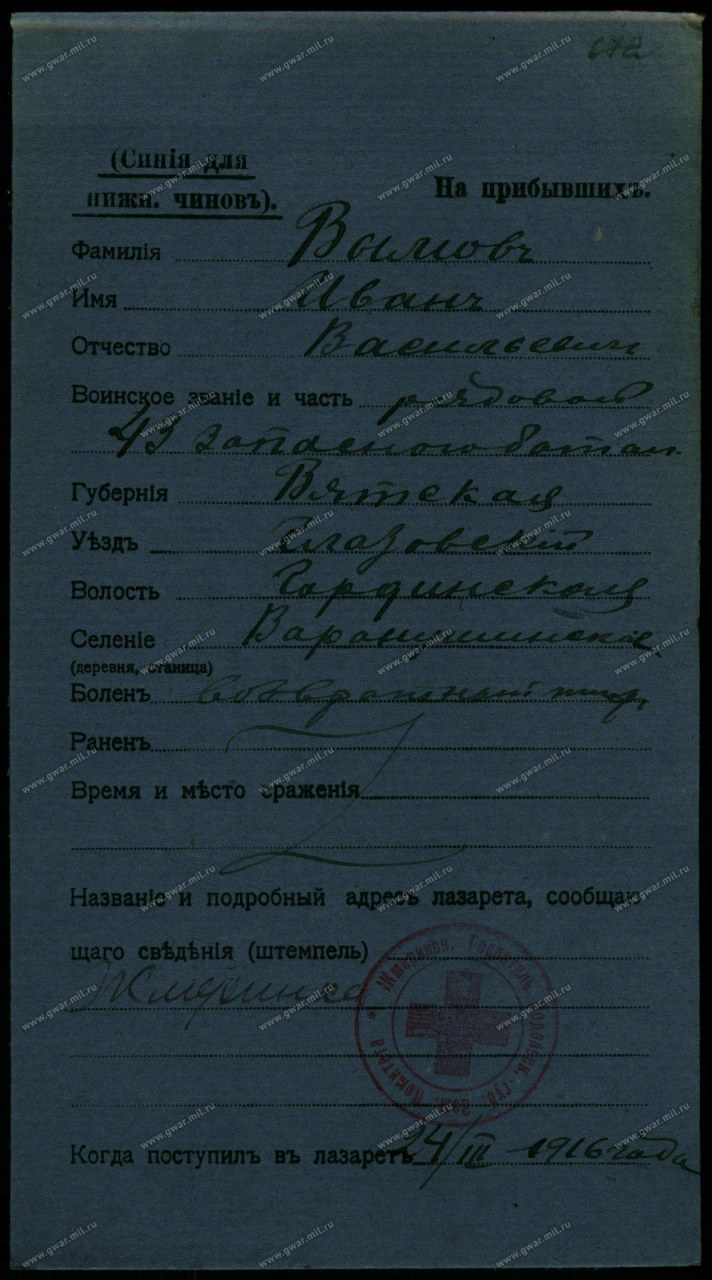 (Синія для
нижн. чиновъ).
На прибывшихъ.
Фамилія Вылковъ
Имя Иванъ
Отчество Васильевич
Воинское званіе и часть рядовой
43 запасного батал.
Губернія Вятская
Уѣздъ Глазовскій
Волость Гординская
Селеніе
(деревня, станица)
Боленъ возвратный тиф
Раненъ
Время и мѣсто сраженія
Названіе и подробный адресъ лазарета, сообщаю-
щаго свѣдѣнія (штемпель)
Жмеринка
Жмеринск. Госпиталь Подольск. Губ. Зем. Комитета *
Когда поступилъ въ лазаретъ 24/III 1916 года
www.gwar.mil.ru